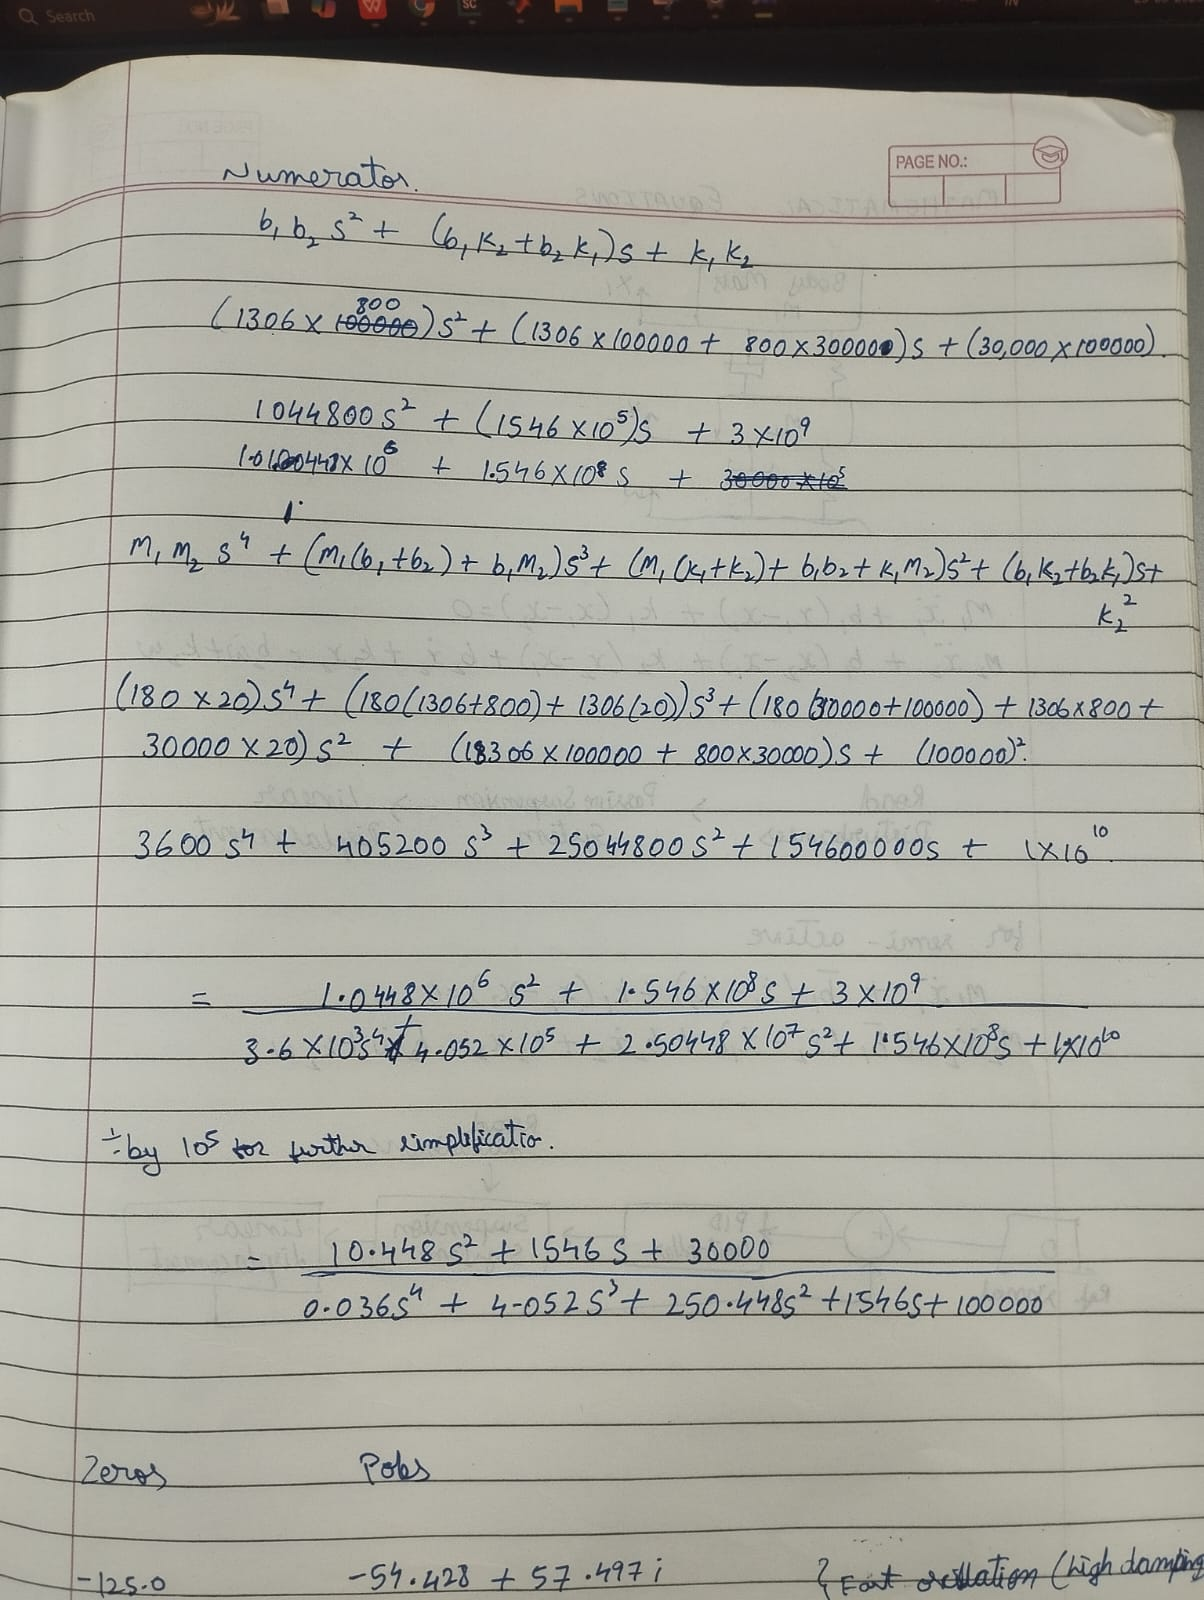 Search
PAGE NO.:
Numerator.
b₁ b₂ s² + (b₁ k₂ + b₂ k₁)s + k₁ k₂
800
(1306 × 100000)s² + (1306 × 100000 + 800 × 30000)s + (30,000 × 100000).
1044800 s² + (1546 × 10⁵)s + 3 × 10⁹
+ 1.546 × 10⁸ s + 30000 × 10⁵
m₁ m₂ s⁴ + (m₁(b₁ + b₂) + b₁ m₂)s³ + (m₁(k₁ + k₂) + b₁b₂ + k₁ m₂)s² + (b₁ k₂ + b₂ k₁)s +
k₂²
(180 × 20)s⁴ + (180(1306+800) + 1306(20))s³ + (180(30000+100000) + 1306×800 +
30000 × 20)s² + (1306 × 100000 + 800×30000)s + (100000)².
3600 s⁴ + 405200 s³ + 25044800 s² + 154600000s + 1×10¹⁰.
= 1.0448×10⁶ s² + 1.546×10⁸s + 3×10⁹
3.6×10³s⁴ + 4.052×10⁵ + 2.50448×10⁷s² + 1.546×10⁸s + 1×10¹⁰
÷ by 10⁵ for further simplificatio.
= 10.448 s² + 1546 s + 30000
0.036s⁴ + 4.052s³ + 250.448s² + 1546s + 100000
Zeros Poles
-125.0 -54.428 + 57.497i } Fast oscillation (high damping